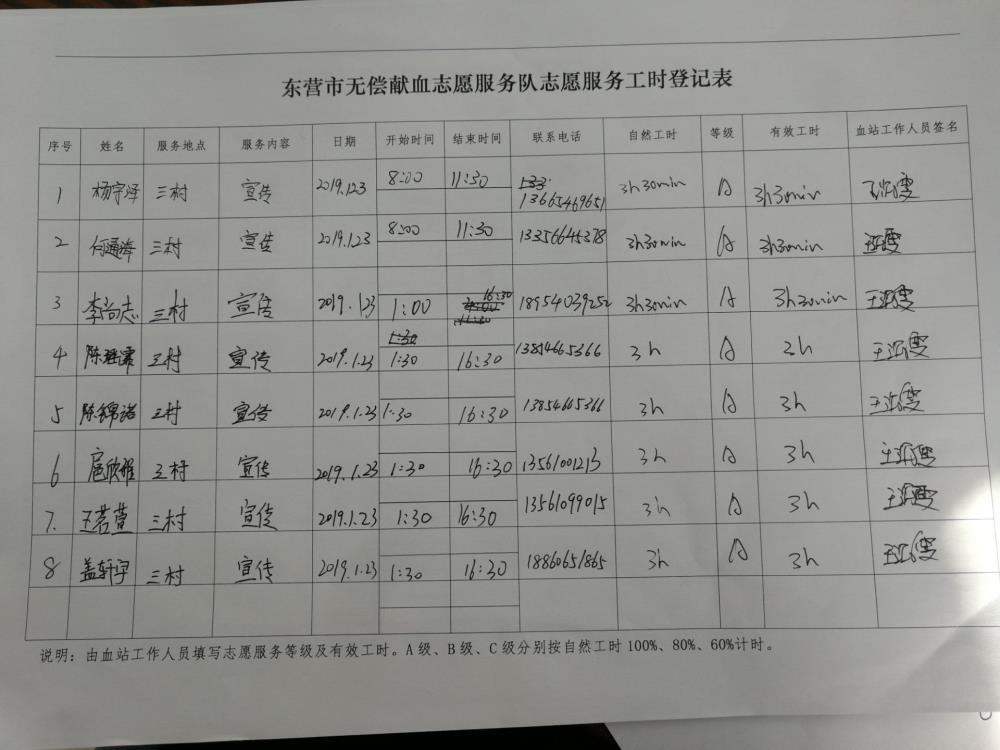 东营市无偿献血志愿服务队志愿服务工时登记表
序号 姓名 服务地点 服务内容 日期 开始时间 结束时间 联系电话 自然工时 等级 有效工时 血站工作人员签名
1 杨宇泽 三村 宣传 2019.1.23 8:00 11:30 13665469651 3h30min A 3h30min
2 三村 宣传 2019.1.23 8:00 11:30 13356644378 3h30min A 3h30min
3 李尚志 三村 宣传 2019.1.23 1:00 16:30 18954039252 3h30min A 3h30min
4 三村 宣传 2019.1.23 1:30 16:30 13854665366 3h A 3h
5 陈锦诺 三村 宣传 2019.1.23 1:30 16:30 13854665366 3h A 3h
6 三村 宣传 2019.1.23 1:30 16:30 13561001213 3h A 3h
7. 王茗萱 三村 宣传 2019.1.23 1:30 16:30 13561099015 3h A 3h
8 盖轩宇 三村 宣传 2019.1.23 1:30 16:30 18860651865 3h A 3h
说明：由血站工作人员填写志愿服务等级及有效工时。A级、B级、C级分别按自然工时100%、80%、60%计时。